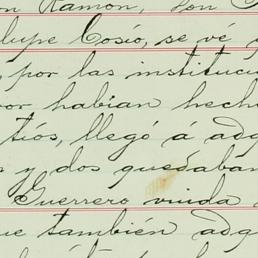 on Ramon, Don
lupe Cosío, se vé y
, por las instituci
or habian hech
tiós, llegó á adq
y dos quedaban
Guerrero viuda
ue también adq